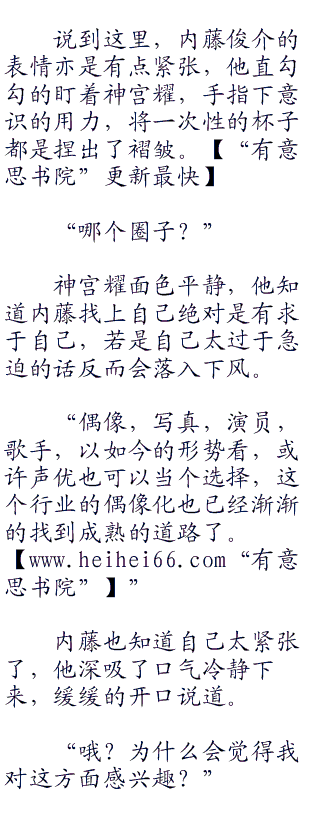 说到这里，内藤俊介的
表情亦是有点紧张，他直勾
勾的盯着神宫耀，手指下意
识的用力，将一次性的杯子
都是捏出了褶皱。【“有意
思书院”更新最快】
“哪个圈子？”
神宫耀面色平静，他知
道内藤找上自己绝对是有求
于自己，若是自己太过于急
迫的话反而会落入下风。
“偶像，写真，演员，
歌手，以如今的形势看，或
许声优也可以当个选择，这
个行业的偶像化也已经渐渐
的找到成熟的道路了。
【www.heihei66.com“有意
思书院”】”
内藤也知道自己太紧张
了，他深吸了口气冷静下
来，缓缓的开口说道。
“哦？为什么会觉得我
对这方面感兴趣？”